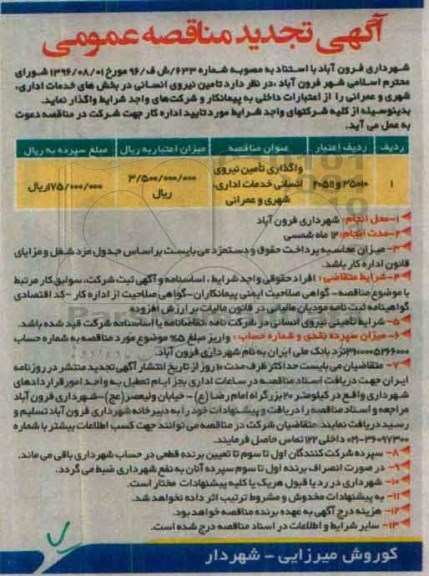 آگهی تجدید مناقصه عمومی
شهرداری فرون آباد با استناد به مصوبه شماره ۶۳۳/ش ف/۹۶ مورخ ۱۳۹۶/۰۸/۰۱ شورای
محترم اسلامی شهر فرون آباد ،در نظر دارد تامین نیروی انسانی در بخش های خدمات اداری،
شهری و عمرانی را از اعتبارات داخلی به پیمانکار و شرکت‌های واجد شرایط واگذار نماید.
بدینوسیله از کلیه شرکتهای واجد شرایط مورد تایید اداره کار جهت شرکت در مناقصه دعوت
به عمل می آید.
ردیف ردیف اعتبار عنوان مناقصه میزان اعتبار به ریال مبلغ سپرده به ریال
واگذاری تأمین نیروی
انسانی خدمات اداری،
شهری و عمرانی
۱
۳/۵۰۰/۰۰۰/۰۰۰
ریال
۱۷۵/۰۰۰/۰۰۰ریال
۱-محل انجام: شهرداری فرون آباد
۲-مدت انجام: ۱۲ ماه شمسی
۳- میزان محاسبه پرداخت حقوق و دستمزد می‌بایست بر اساس جدول مزد شغل و مزایای
قانون اداره کار باشد.
۴- شرایط متقاضی: افراد حقوقی واجد شرایط ، اساسنامه و آگهی ثبت شرکت، سوابق کار مرتبط
با موضوع مناقصه- گواهی صلاحیت ایمنی پیمانکاران-گواهی صلاحیت از اداره کار -کد اقتصادی
گواهینامه ثبت نام مودیان مالیاتی در قانون مالیات بر ارزش افزوده
۵- شرایط تأمین نیروی انسانی در شرکت نامه ،تقاضانامه یا اساسنامه شرکت قید شده باشد.
۶- میزان سپرده نقدی و شماره حساب: واریز مبلغ ۵% موضوع مورد مناقصه به شماره حساب
نزد بانک ملی ایران به نام شهرداری فرون آباد.
۷- متقاضیان می بایست حداکثر ظرف مدت ۱۰ روز از تاریخ انتشار آگهی تجدید منتشر در روزنامه
ایران جهت دریافت اسناد مناقصه در ساعات اداری بجز ایام تعطیل به واحد امور قراردادهای
شهرداری واقع در کیلومتر ۲۰ بزرگراه امام رضا (ع) - خیابان ولیعصر(عج)-شهرداری فرون آباد
مراجعه و اسناد مناقصه را دریافت و پیشنهادات خود را به دبیرخانه شهرداری فرون آباد تسلیم و
رسید دریافت نمایند. متقاضیان شرکت در مناقصه می توانند جهت کسب اطلاعات بیشتر با شماره
۰۲۱-۳۶۰۹۷۳۰۰ داخلی ۱۲۲ تماس حاصل فرمایند.
۸- سپرده شرکت کنندگان اول تا سوم تا تعیین برنده قطعی در حساب شهرداری باقی می ماند.
۹- در صورت انصراف برنده اول تا سوم سپرده آنان به نفع شهرداری ضبط می گردد.
۱۰- شهرداری در رد یا قبول هریک یا کلیه پیشنهادات مختار است.
۱۱- به پیشنهادات مخدوش و مشروط ترتیب اثر داده نخواهد شد.
۱۲- هزینه درج آگهی به عهده برنده مناقصه خواهد بود.
۱۳- سایر شرایط و اطلاعات در اسناد مناقصه درج شده است.
کوروش میرزایی - شهردار